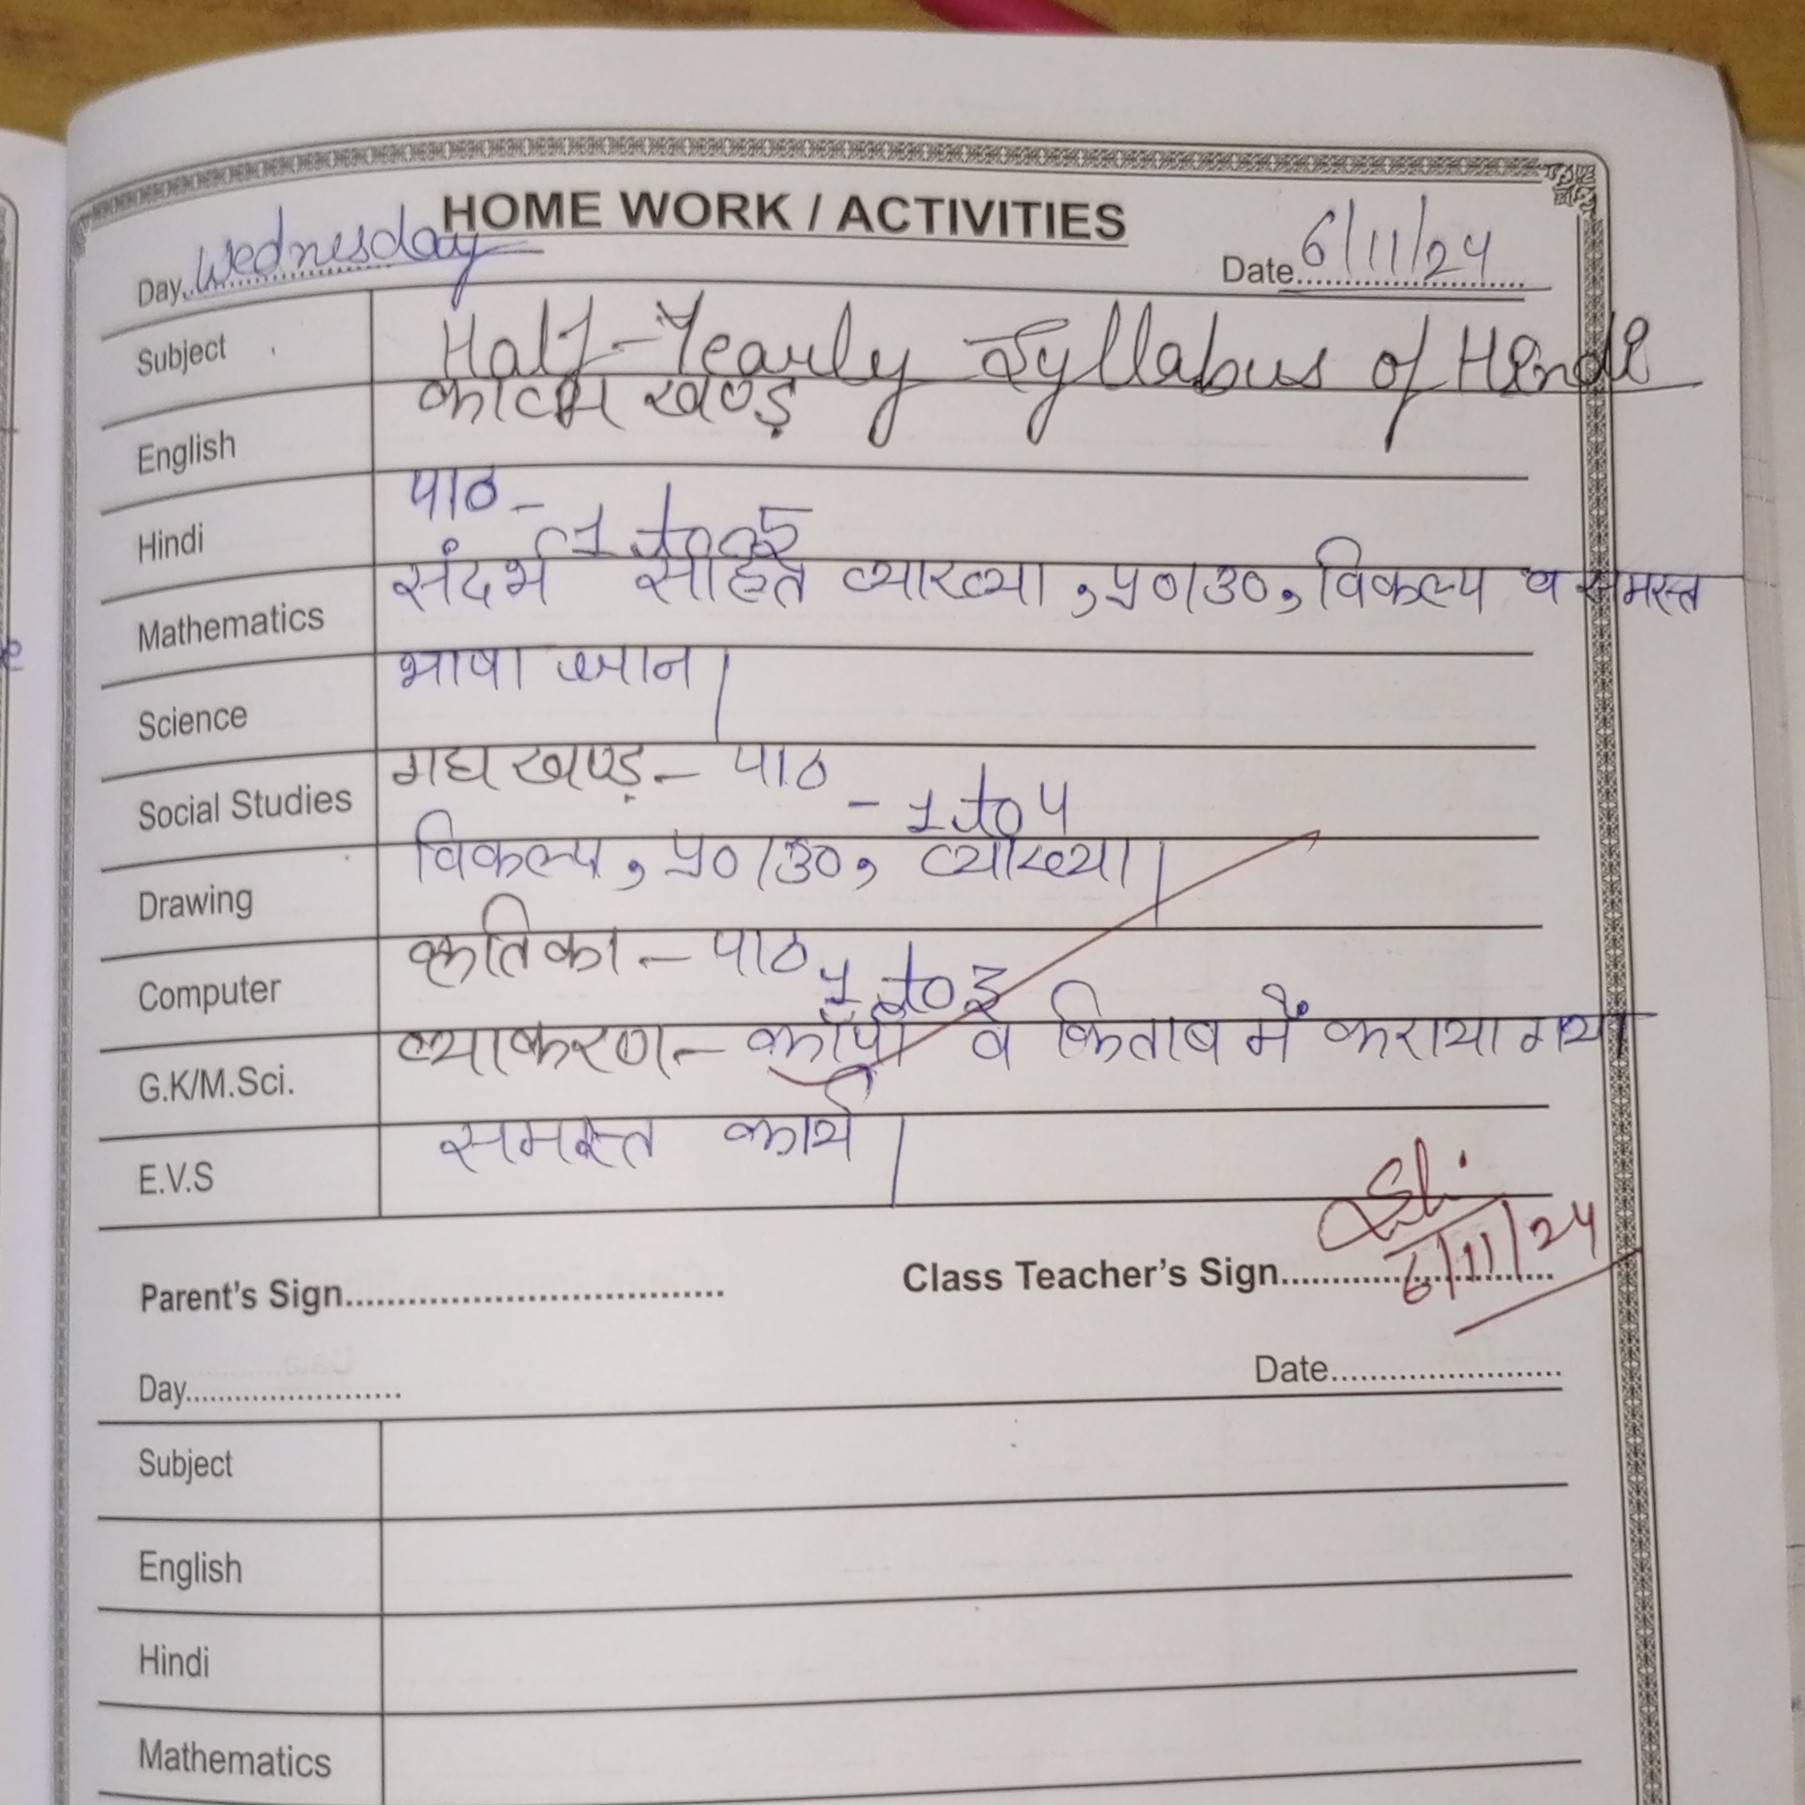 HOME WORK / ACTIVITIES
Day..Wednesday
Date..6/11/24
Subject Half-Yearly Syllabus of Hindi
काव्य खण्ड़
English
पाठ -
Hindi 1 to 5
संदर्भ सहित व्याख्या, प्र०/उ०, विकल्प व समस्त
Mathematics
भाषा ज्ञान|
Science
गद्य खण्ड़ - पाठ
Social Studies - 1 to 4
विकल्प, प्र०/उ०, व्याख्या|
Drawing
कृतिका - पाठ
Computer 1 to 3
व्याकरण - कॉपी व किताब में कराया गया
G.K/M.Sci.
समस्त कार्य |
E.V.S
Parent's Sign.......................................
Class Teacher's Sign............................
6/11/24
Day........................
Date........................
Subject
English
Hindi
Mathematics